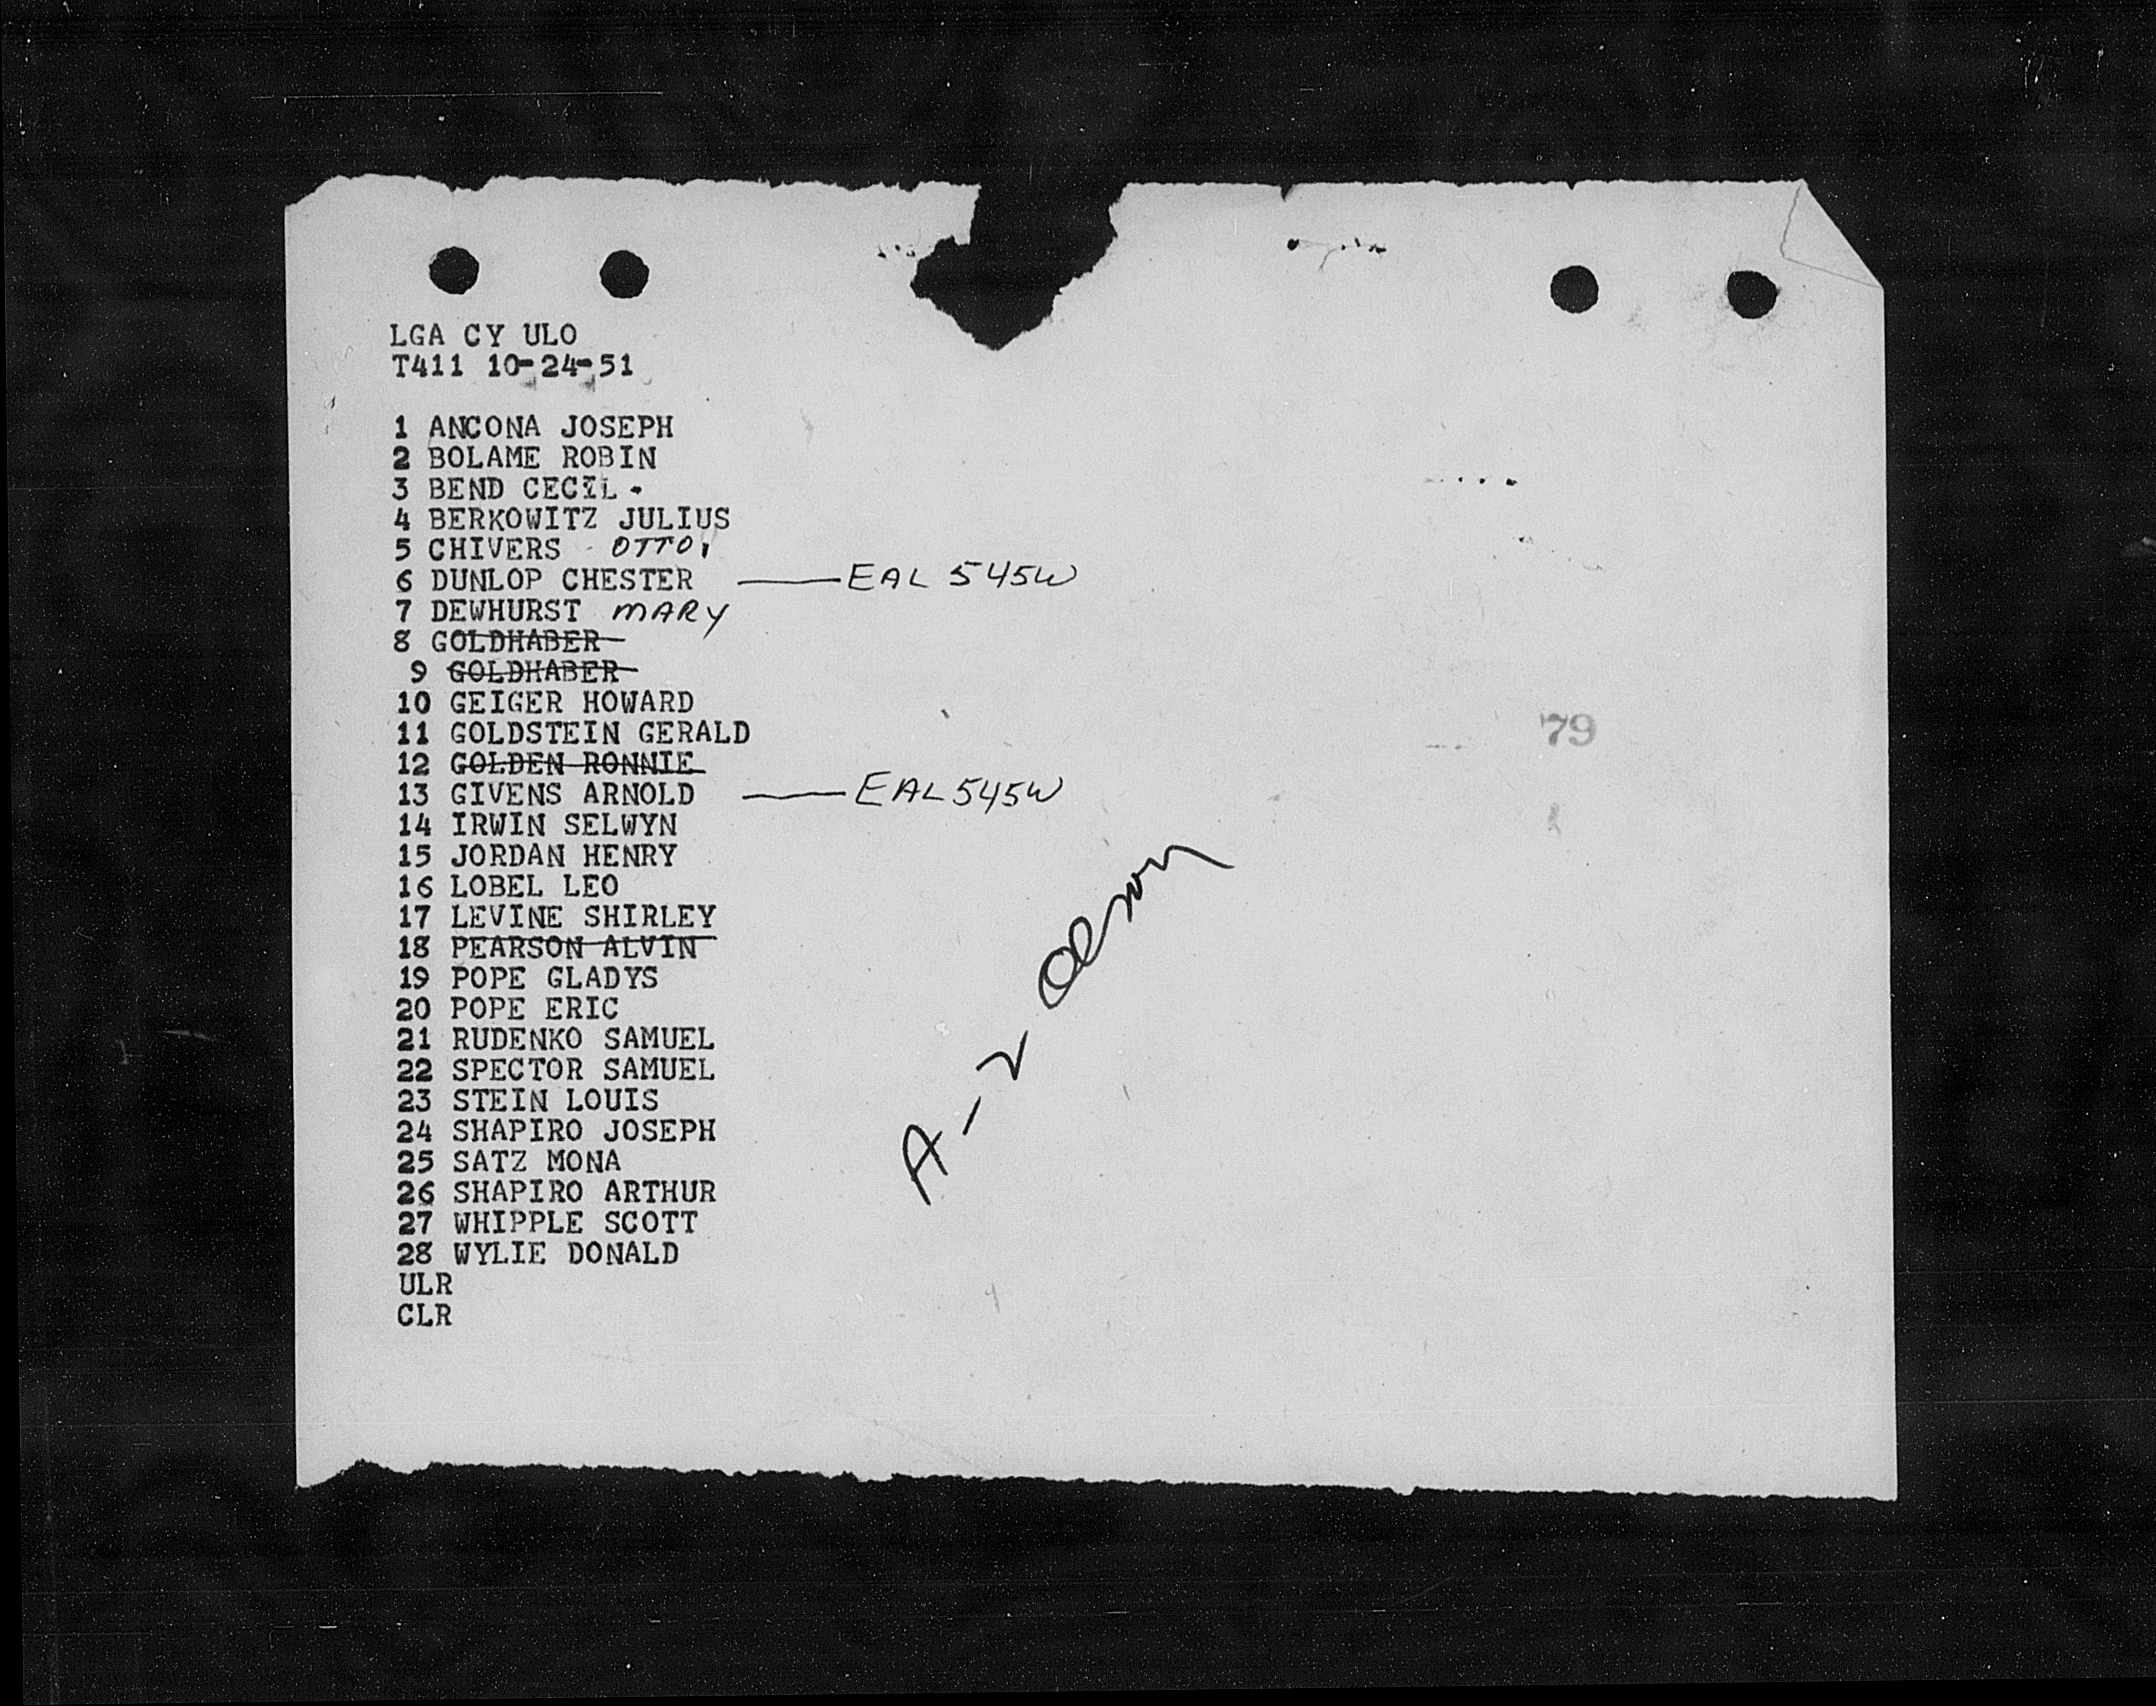 LGA CY ULO
T411 10-24-51
1 ANCONA JOSEPH
2 BOLAME ROBIN
3 BEND CECIL
4 BERKOWITZ JULIUS
5 CHIVERS OTTO
6 DUNLOP CHESTER — EAL 545W
7 DEWHURST MARY
8 GOLDHABER
9 GOLDHABER
10 GEIGER HOWARD
11 GOLDSTEIN GERALD
79
12 GOLDEN RONNIE
13 GIVENS ARNOLD — EAL 545W
14 IRWIN SELWYN
15 JORDAN HENRY
16 LOBEL LEO
17 LEVINE SHIRLEY
18 PEARSON ALVIN
19 POPE GLADYS
20 POPE ERIC
21 RUDENKO SAMUEL
22 SPECTOR SAMUEL
23 STEIN LOUIS
24 SHAPIRO JOSEPH
25 SATZ MONA
26 SHAPIRO ARTHUR
27 WHIPPLE SCOTT
28 WYLIE DONALD
ULR
CLR
A-2 Olson